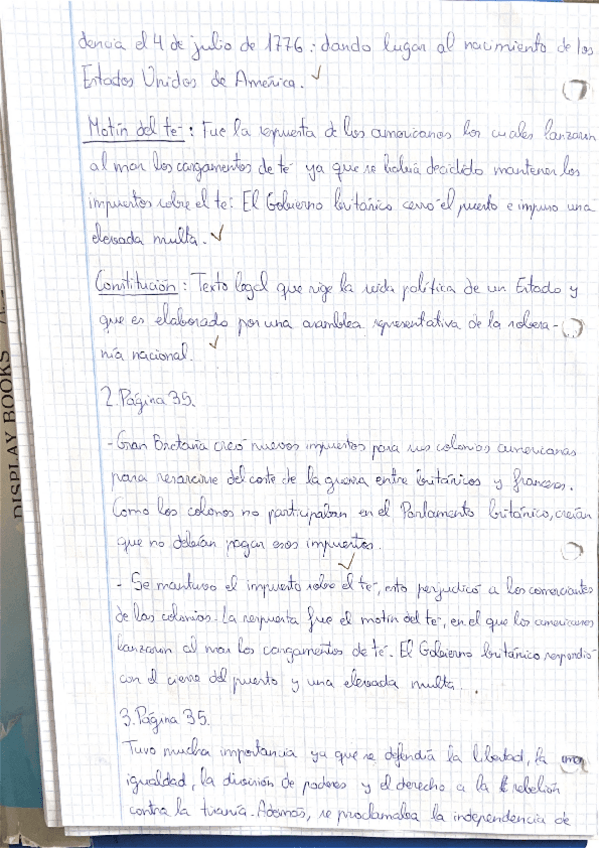 dencia el 4 de julio de 1776: dando lugar al nacimiento de los
Estados Unidos de América.
Motín del té: Fue la respuesta de los americanos los cuales lanzaron
al mar los cargamentos de té ya que se había decidido mantener los
impuestos sobre el té. El Gobierno británico cerró el puerto e impuso una
elevada multa.
Constitución: Texto legal que rige la vida política de un Estado y
que es elaborado por una asamblea representativa de la sobera-
nía nacional.
2. Página 35.
- Gran Bretaña creó nuevos impuestos para sus colonias americanas
para resarcirse del coste de la guerra entre británicos y franceses.
Como los colonos no participaban en el Parlamento británico, creían
que no debían pagar esos impuestos.
- Se mantuvo el impuesto sobre el té, esto perjudicó a los comerciantes
de las colonias. La respuesta fue el motín del té, en el que los americanos
lanzaron al mar los cargamentos de té. El Gobierno británico respondió
con el cierre del puerto y una elevada multa.
3. Página 35.
Tuvo mucha importancia ya que se defendía la libertad, la
igualdad, la división de poderes y el derecho a la rebelión
contra la tiranía. Además, se proclamaba la independencia de
DISPLAY BOOKS